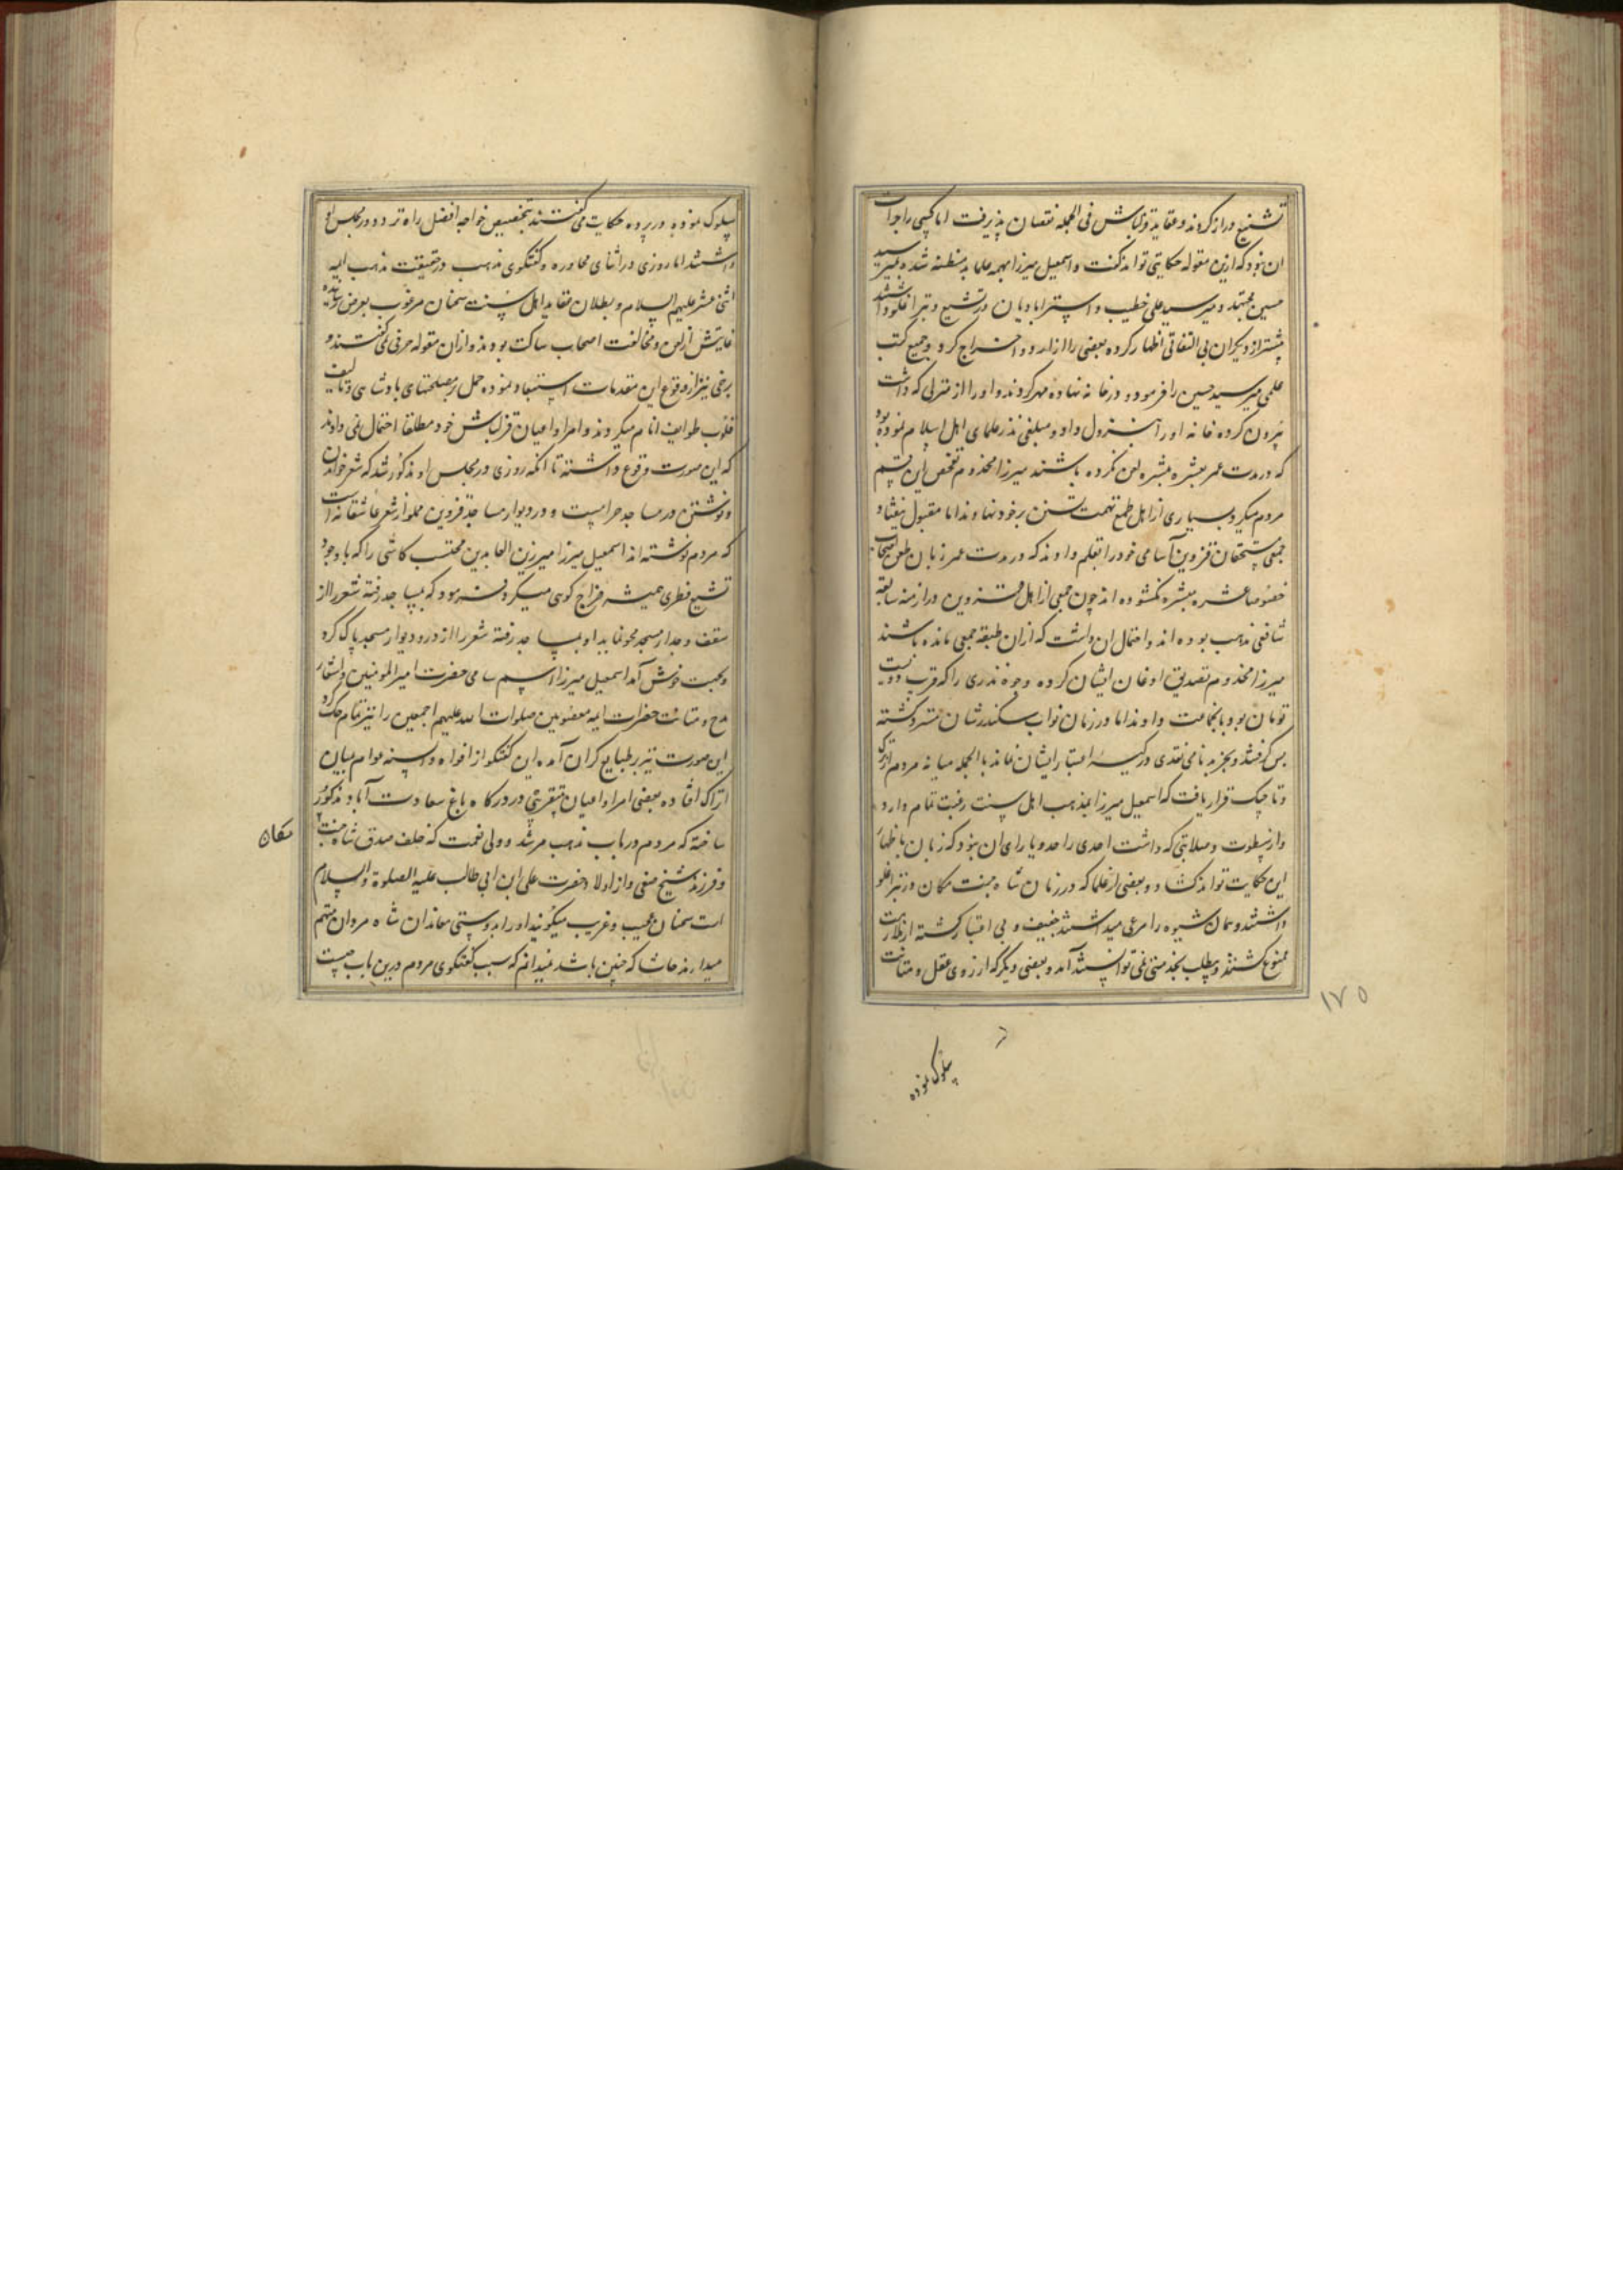 تشنیع دراز کردند و عقاید قزلباش فی الجمله نقصان پذیرفت اما کسی را جرأت
ان نبود که ازین مقوله حکایتی تواند گفت و اسمعیل میرزا بهمه علما بدمظنه شده بمیرسید
حسین مجتهد و میر سید علی خطیب و استرابادیان که در تشیع و تبرا غلو داشتند
بیشتر از دیگران بی التفاتی اظهار کرده بعضی را از اردو اخراج کرد و جمیع کتب
علمی میر سید حسین را فرمود در خانه نهاده مهر کردند و او را از منزلی که داشت
بیرون کرده خانه او را بنزول داد و مبلغی نذر علمای اهل اسلام نموده بود
که در مدت عمر بعشره مبشره لعن نکرده باشند میرزا مخدوم تفحص این قسم
مردم میکرد بسیاری از اهل طمع تهمت تسنن بر خود نهادند اما مقبول نیفتاد
جمعی مستحقان قزوین اسامی خود را بقلم دادند که در مدت عمر زبان بطعن اصحاب
خصوصا عشره مبشره نگشوده اند چون جمعی از اهل قزوین در ازمنه سابقه
شافعی مذهب بوده اند و احتمال ان داشت که از ان طبقه جمعی مانده باشند
میرزا مخدوم تصدیق اوعان ایشان کرده وجوه نذری را که قریب دویست
تومان بود بانجماعت دادند اما در زمان نواب سکندرشان مسترد گشته
پس گرفتند و بجز بدنامی نقدی در کیسه اعتبار ایشان نماند بالجمله میانه مردم اتراک
و تاجیک قرار یافت که اسمعیل میرزا بمذهب اهل سنت رغبت تمام دارد
و از سطوت و صلابتی که داشت احدی را حد و یارای ان نبود که زبان باظهار
این حکایت تواند گشاد و بعضی از علما که در زمان شاه جنت مکان در تبرا غلو
داشتند و همان شیوه را مرعی میداشتند خفیف و بی اعتبار گشته از ملازمت
ممنوع گشتند و بیطلب بخدمتش نمی توانستند آمد و بعضی دیگر که از روی عقل و متانت
۱۷۵
سلوک نموده
سلوک نموده در پرده حکایت می گفتند بتخصیص خواجه افضل راه تردد در مجلس او
داشتند اما روزی در اثنای محاوره و گفتگوی مذهب در حقیقت مذهب ایمه
اثنی عشر علیهم السلام و بطلان عقاید اهل سنت سخنان مرغوب بعرض رسانیده
غایتش از لعن و مخالفت اصحاب ساکت بودند و از ان مقوله حرفی نمی گفتند و
برخی نیز از وقوع این مقدمات استبعاد نموده حمل بر مصلحتهای پادشاهی و تالیف
قلوب طوایف انام میکردند و امرا و اعیان قزلباش خود مطلقا احتمال نمی دادند
که این صورت وقوع داشته تا انکه روزی در مجلس او مذکور شد که شعر خواندن
و نوشتن در مساجد حرامست و در دیوار مساجد قزوین مملو از شعر عاشقانه است
که مردم نوشته اند اسمعیل میرزا میر زین العابدین محتسب کاشی را که با وجود
تشیع فطری همیشه مزاج گوی میکرد فرمود که بمساجد رفته شعر را از
سقف و جدار مسجد محو نماید او بمساجد رفته شعر را از در و دیوار مسجد پاک کرد
و بجهت خوش آمد اسمعیل میرزا اسم سامی حضرت امیر المومنین و اشعار
مدح و منقبت حضرات ایمه معصومین صلوات الله علیهم اجمعین را نیز تمام حک کرد
این صورت نیز بر طبایع گران آمده این گفتگو از افواه و السنه عوام بمیان
اتراک افتاده بعضی امرا و اعیان بتقریبی در درگاه باغ سعادت آباد مذکور
ساخته که مردم در باب مذهب مرشد و ولی نعمت که خلف صدق شاه جنت
مکان
و فرزند شیخ صفی و از اولاد حضرت علی ابن ابی طالب علیه الصلوة والسلام
است سخنان عجیب و غریب میگویند او را بدوستی معاندان شاه مردان متهم
میدارند حاشا که چنین باشد نمیدانم که سبب گفتگوی مردم درین باب چیست